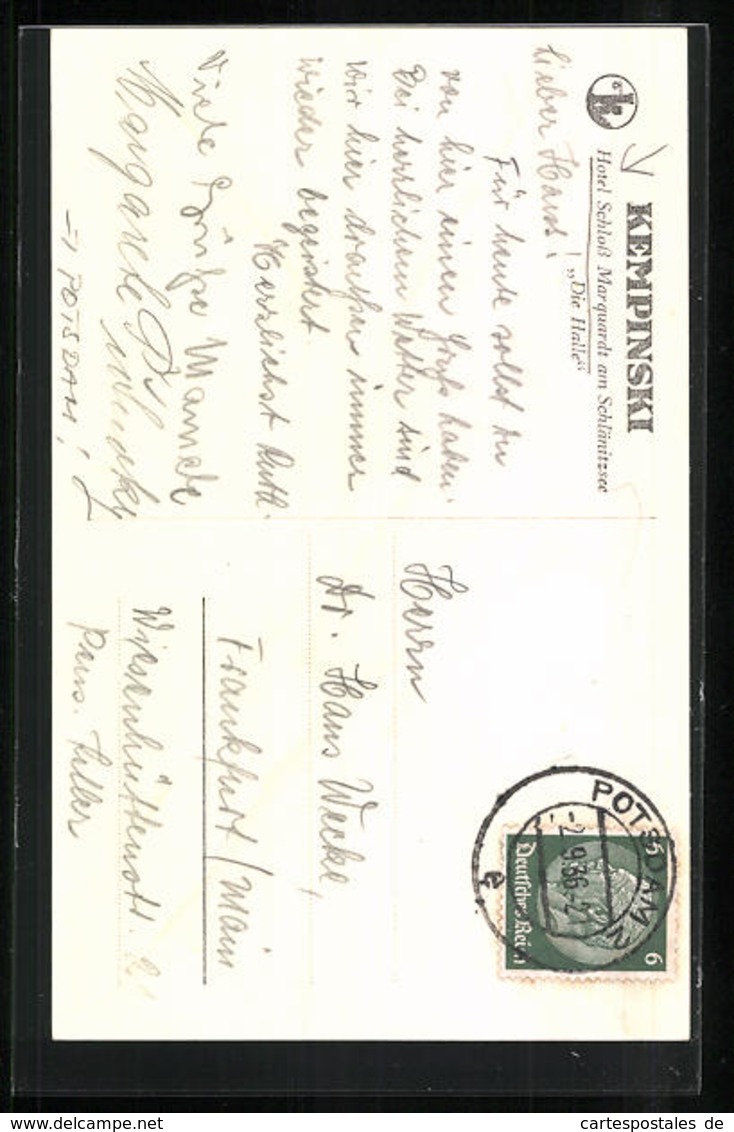 KEMPINSKI
Hotel Schloß Marquardt am Schlänitzsee
„Die Halle“
Lieber Hans!
Für heute sollst du
von hier einen Gruß haben.
Bei herrlichem Wetter sind
wir hier draußen immer
wieder begeistert
Herzlichst Ruth.
Viele Grüße
Margarete
→ POTSDAM!
Herrn
Dr. Hans Wecke,
Frankfurt/Main
Wiesenhüttenstr.
Pens.
POTSDAM
-2.9.36
e
Deutsches Reich
6
cartespostales.de